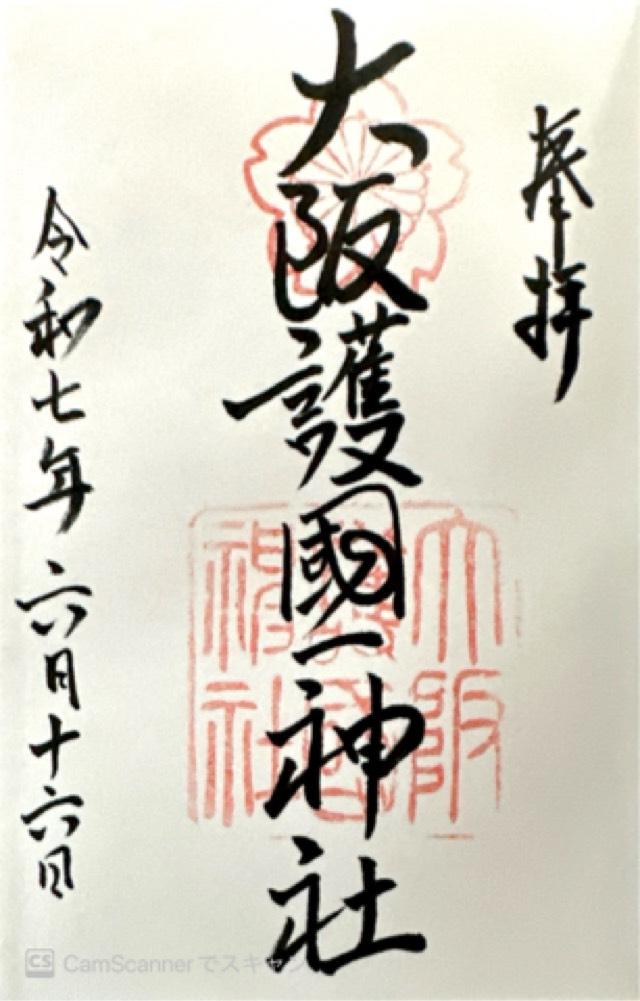 奉拝
大阪護國神社
大阪護國神社
令和七年六月十六日
CS CamScannerでスキャン